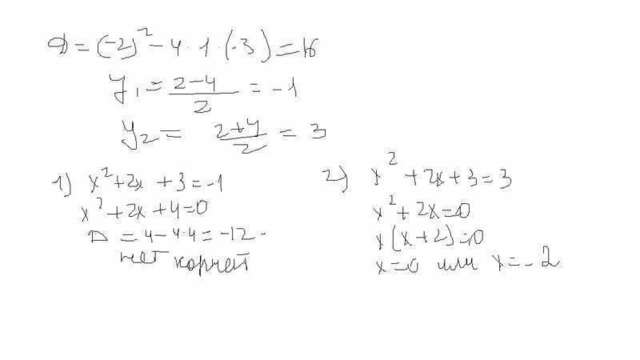 D = (-2)² - 4 · 1 · (-3) = 16
y₁ = (2-4)/2 = -1
y₂ = (2+4)/2 = 3
1) x² + 2x + 3 = -1
x² + 2x + 4 = 0
D = 4 - 4·4 = -12 -
нет корней
2) x² + 2x + 3 = 3
x² + 2x = 0
x(x+2) = 0
x = 0 или x = -2